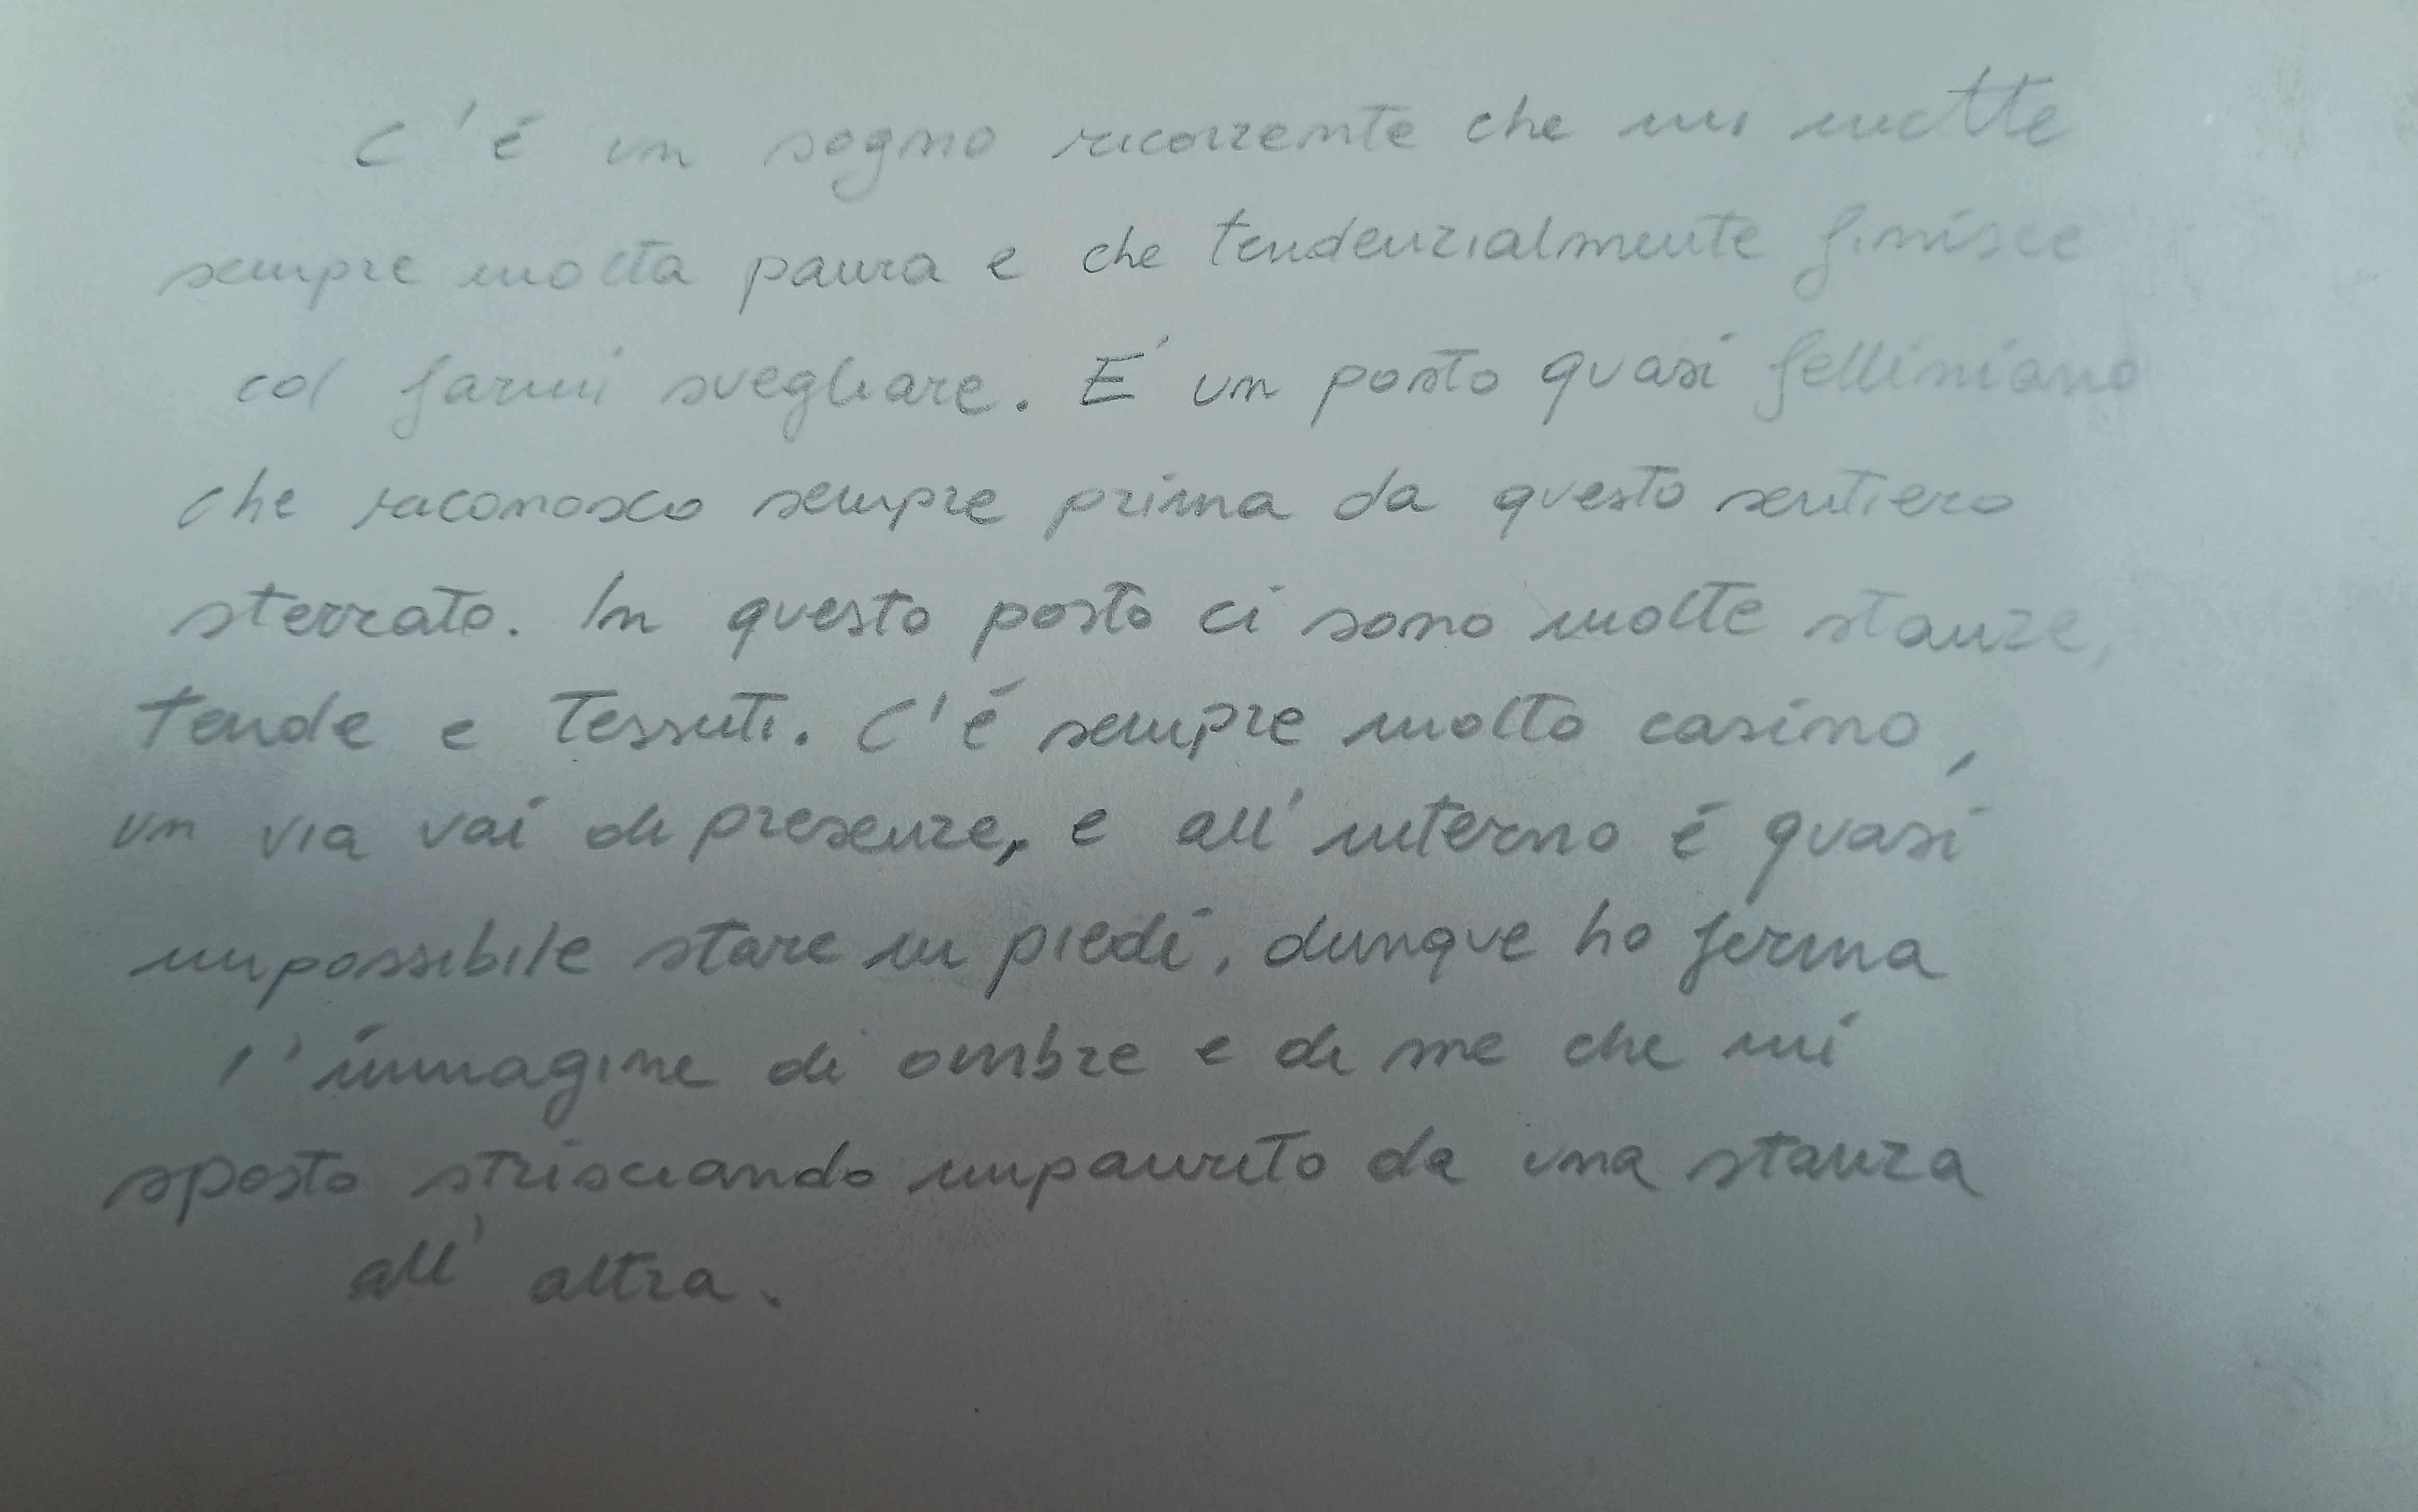 C'é un sogno ricorrente che mi mette
sempre molta paura e che tendenzialmente finisce
col farmi svegliare. E' un posto quasi felliniano
che riconosco sempre prima da questo sentiero
sterrato. In questo posto ci sono molte stanze,
tende e tessuti. C'é sempre molto casino,
un via vai di presenze, e all'interno é quasi
impossibile stare in piedi, dunque ho ferma
l'immagine di ombre e di me che mi
sposto strisciando impaurito da una stanza
all'altra.